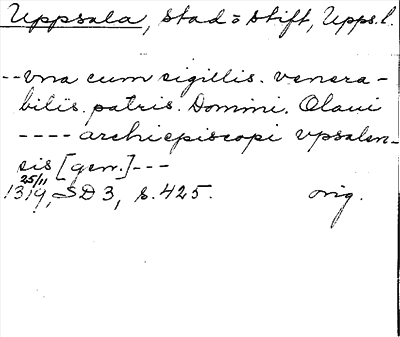 Uppsala, stad o stift, Upps.l.
--vna cum sigillis. venera-
bilis. patris. Domini. Olaui
---- archiepiscopi vpsalen-
sis [gen.]---
25/11
1319, SD 3, s. 425. orig.